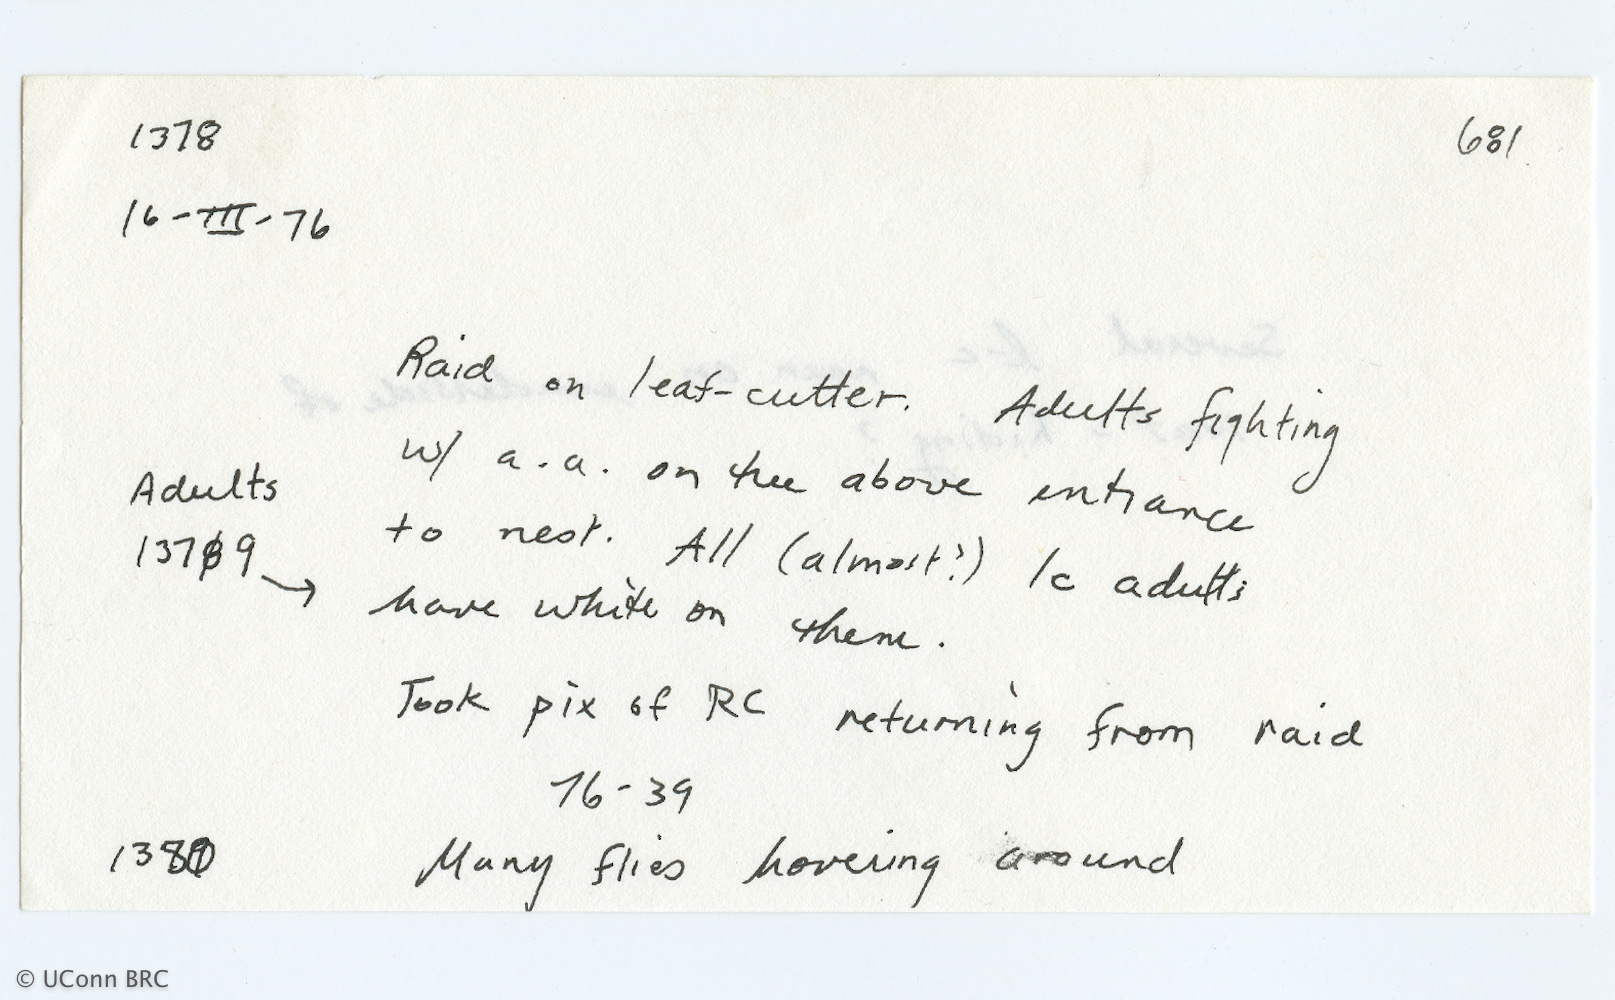 1378
681
16-III-76
Raid on leaf-cutter. Adults fighting
w/ a.a. on tree above entrance
Adults
to nest. All (almost?) lc adults
1379
→ have white on them.
Took pix of RC returning from raid
76-39
1380 Many flies hovering around
© UConn BRC